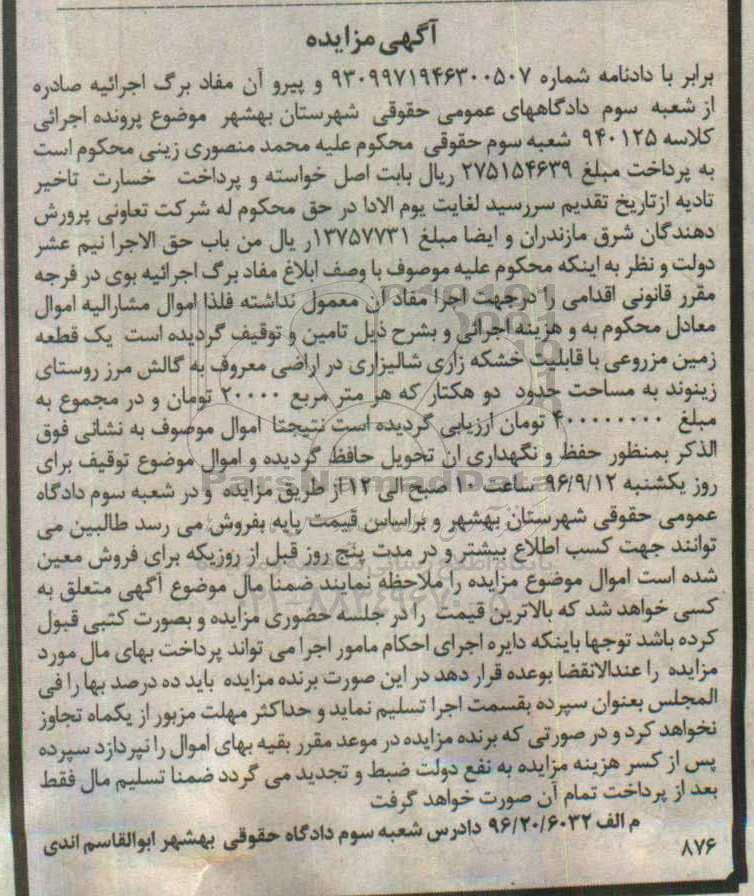 آگهی مزایده
برابر با دادنامه شماره ۹۳۰۹۹۷۱۹۴۶۳۰۰۵۰۷ و پیرو آن مفاد برگ اجرائیه صادره
از شعبه سوم دادگاههای عمومی حقوقی شهرستان بهشهر موضوع پرونده اجرائی
کلاسه ۹۴۰۱۲۵ شعبه سوم حقوقی محکوم علیه محمد منصوری زینی محکوم است
به پرداخت مبلغ ۲۷۵۱۵۴۶۳۹ ریال بابت اصل خواسته و پرداخت خسارت تاخیر
تادیه ازتاریخ تقدیم سررسید لغایت یوم الادا در حق محکوم له شرکت تعاونی پرورش
دهندگان شرق مازندران و ایضا مبلغ ۱۳۷۵۷۷۳۱ر یال من باب حق الاجرا نیم عشر
دولت و نظر به اینکه محکوم علیه موصوف با وصف ابلاغ مفاد برگ اجرائیه بوی در فرجه
مقرر قانونی اقدامی را درجهت اجرا مفاد آن معمول نداشته فلذا اموال مشارالیه اموال
معادل محکوم به و هزینه اجرائی و بشرح ذیل تامین و توقیف گردیده است یک قطعه
زمین مزروعی با قابلیت خشکه زاری شالیزاری در اراضی معروف به گالش مرز روستای
زینوند به مساحت حدود دو هکتار که هر متر مربع ۲۰۰۰۰ تومان و در مجموع به
مبلغ ۴۰۰۰۰۰۰۰۰ تومان ارزیابی گردیده است نتیجتا اموال موصوف به نشانی فوق
الذکر بمنظور حفظ و نگهداری ان تحویل حافظ گردیده و اموال موضوع توقیف برای
روز یکشنبه ۹۶/۹/۱۲ ساعت ۱۰ صبح الی ۱۲ از طریق مزایده و در شعبه سوم دادگاه
عمومی حقوقی شهرستان بهشهر و براساس قیمت پایه بفروش می رسد طالبین می
توانند جهت کسب اطلاع بیشتر و در مدت پنج روز قبل از روزیکه برای فروش معین
شده است اموال موضوع مزایده را ملاحظه نمایند ضمنا مال موضوع آگهی متعلق به
کسی خواهد شد که بالاترین قیمت را در جلسه حضوری مزایده و بصورت کتبی قبول
کرده باشد توجها باینکه دایره اجرای احکام مامور اجرا می تواند پرداخت بهای مال مورد
مزایده را عندالاتقضا بوعده قرار دهد در این صورت برنده مزایده باید ده درصد بها را فی
المجلس بعنوان سپرده بقسمت اجرا تسلیم نماید و حداکثر مهلت مزبور از یکماه تجاوز
نخواهد کرد و در صورتی که برنده مزایده در موعد مقرر بقیه بهای اموال را نپردازد سپرده
پس از کسر هزینه مزایده به نفع دولت ضبط و تجدید می گردد ضمنا تسلیم مال فقط
بعد از پرداخت تمام آن صورت خواهد گرفت
م الف ۹۶/۲۰/۶۰۳۲ دادرس شعبه سوم دادگاه حقوقی بهشهر ابوالقاسم اندی
۸۷۶
ParsNamadData